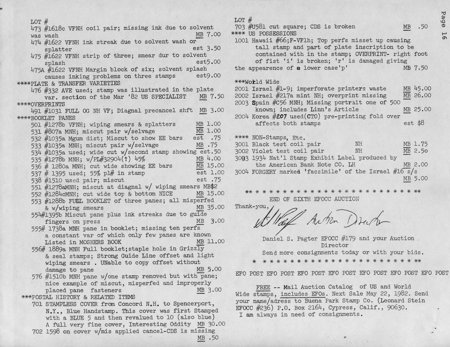 LOT #
473 #1618c VFNH coil pair; missing ink due to solvent
was wash MB 7.00
474 #1622 VFNH ink streak due to solvent wash or
splatter est 3.50
475 #1622 VFNH strip of three; smear due to solvent
splash est5.00
475A #1622 VFNH Margin block of six; solvent splash
causes inking problems on three stamps est9.00
****PLATE & TRANSFER VARIETIES
476 #332 AVE used; stamp was illustrated in the plate
var. section of the Mar '82 US SPECIALIST MB 7.50
****OVERPRINTING
491 #1031 FULL OG NH VF; Diagnal precancel shft MB 3.00
****BOOKLET PANES
501 #1278b VFNH; wiping smears MB 1.00
531 #807a MNH; miscut pair w/selvage MB 1.00
532 #1035a Mgum dist; Miscut to show EE bars est .75
533 #1035a MNH; miscut pair w/selvage MB .75
534 #1035a used; wide cut w/second stamp showing est.50
535 #1278b MNH; w/ 4.00
536 # 1280a MNH; cut wide showing EE bars MB 15.00
537 # 1395 used; in stamp est 1.00
538 #1510 used pair; miscut est .75
551 MNH; miscut at diagnal w/ wiping smears
552 MNH; cut wide top & bottom NICE MB 15.00
553 #1288b FULL BOOKLET of three panes; all misperfed
& w/wiping smears MB 35.00
554 #1395b Miscut pane plus ink streaks due to guide
fingers on press MB 3.00
555 1738a MNH pane in booklet; missing ten perfs
a constant var of which only few panes are known
Listed in MOSHERS BOOK MB 11.00
556 1889a MNH Full booklet;staple hole in Grizzly
& seal stamps; Strong Guide Line offset and light
wiping smears . Unable to copy offset without
damage to pane MB 5.00
576 #1510b MNH pane w/one stamp removed but with pane;
nice example of miscut, misperfed and improperly
placed pane fasteners MB 3.00
****POSTAL HISTORY & RELATED ITEMS
701 STAMPLESS COVER from Concord N.H, to Spencerport,
N.Y., Blue Handstamp. This cover was first Stamped
with a BLUE 5 and then revalued to 10 (also blue)
A full very fine cover, Interesting Oddity MB 30.00
702 1598 on cover w/mis applied cancel-CDS is missing
MB .50
LOT #
703 #U581 cut square; CDS is broken MB .50
**** US POSSESSIONS
1001 Hawaii #66;F-VFlh; Top perfs misset up causing
tall stamp and part of plate inscription to be
contained with in the stamp; OVERPRINT- right foot
of fist 'i' is broken; 'r' is damaged giving
the appearance of a lower case'p' MB 7.50
***World Wide
2001 Israel #1-9; imperforate printers waste MB 45.00
2002 Israel #217a mint NH; overprint missing MB 26.00
2003 Spain #C56 MNH; Missing portrait one of 500
known; includes Linn's Article MB 25.00
2004 Korea used(CTO) pre-printing fold over
affects both stamps est $8
**** NON-Stamps, Etc.
3001 Black test coil pair NH MB 1.75
3002 Violet test coil pair NH MB 2.50
3003 1934 Nat'l Stamp Exhibit Label produced by
the American Bank Note CO. LH MB 2.00
3004 FORGERY marked 'facsimile' of the Israel #16 s/s
MB 5.00
* * * * * * * * * * * * * * * *
END OF SIXTH EFOCC AUCTION
Thank-you,
Daniel S. Pagter EFOCC #179 and your Auction
Director
Send more consignments today or with your bids.
* * * * * * * * * * * * * * * *
EFO POST EFO POST EFO POST EFO POST EFO POST EFO POST EFO POST
FREE -- Mail Auction Catalog of US and World
Wide stamps, includes EFOs. Next Sale May 22, 1982. Send
your name/adress to Buena Park Stamp Co. (Leonard Stein
EFOCC #236) P.O. Box 2164, Cypress, Calif., 90630.
I am always in need of consignments.
Page 16